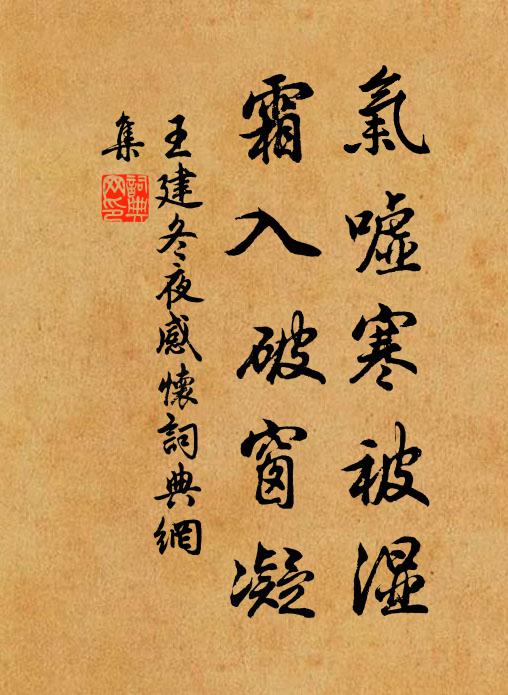 氣噓寒被湿
霜入破窗凝
王建冬夜感懷詞典網
集
詞典
网印